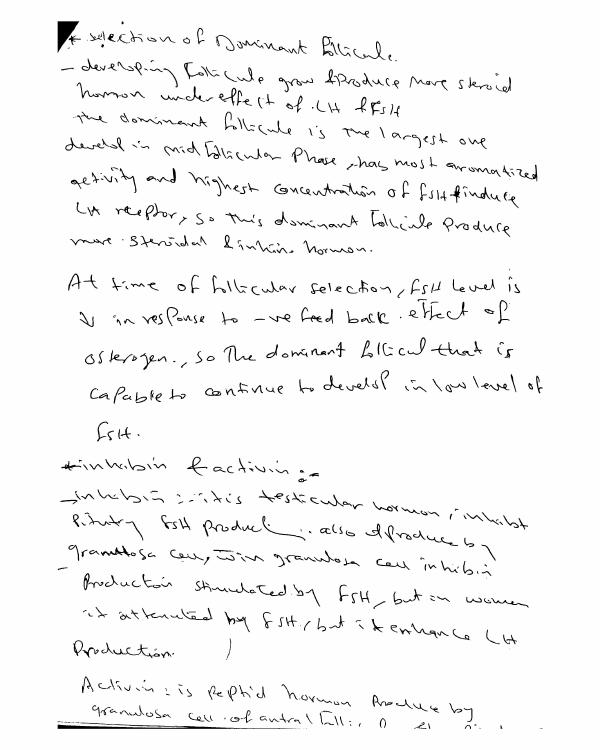 * selection of Dominant follicule.
- developing follicule grow & produce more steroid
hormon under effect of LH & FSH
the dominant follicule is the largest one
develop in mid follicular Phase, has most aromatized
activity and highest concentration of FSH & induce
LH receptor, so this dominant follicule produce
more steroidal & inhibin hormon.
At time of follicular selection, FSH level is
↓ in response to -ve feed back effect of
osterogen., so The dominant follicul that is
capable to continue to develop in low level of
FSH.
* inhibin & activin :-
- inhibin :- it is testicular hormon, inhibt
Pitutry FSH product.. also produce by
- granulosa cell, in granulosa cell inhibin
Production stimulated by FSH, but in women
it attenuted by FSH, but it enhance LH
Production.
Activin : is peptid hormon Produce by
granulosa cell of antral